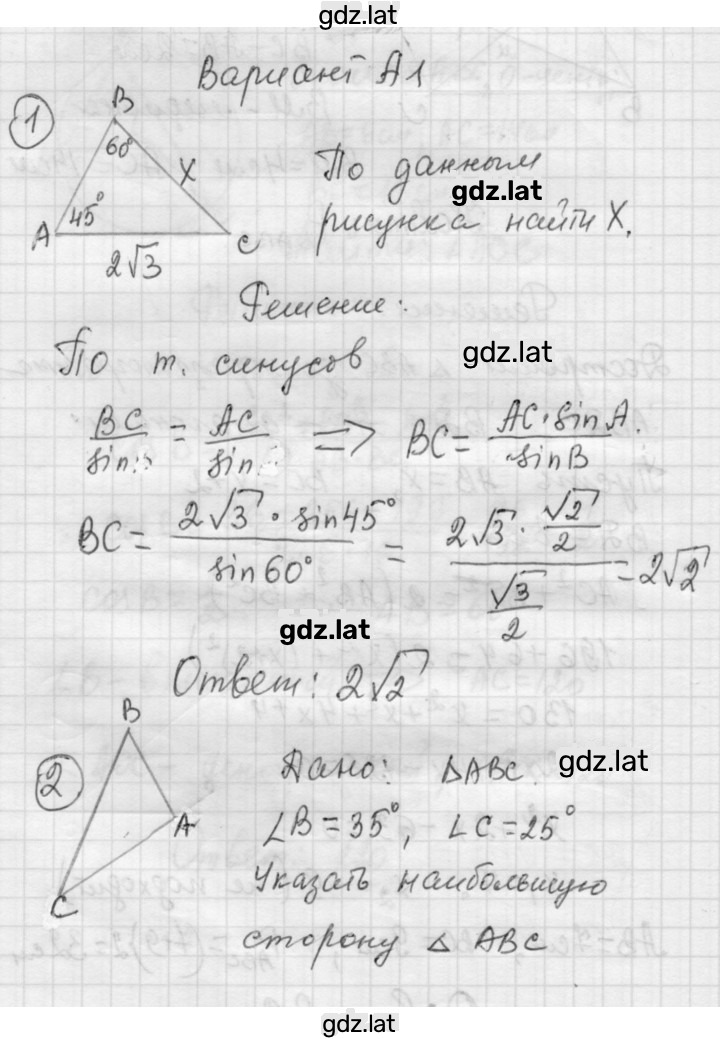 gdz.lat
Вариант А1
1
B
60°
X
По данным
gdz.lat
45°
рисунка найти X.
A
C
2√3
Решение:
По т. синусов
gdz.lat
BC/sin = AC/sin => BC = AC·sinA/sinB.
BC = 2√3·sin45°/sin60° = 2√3·√2/2/√3/2 = 2√2
gdz.lat
Ответ: 2√2
B
2
Дано: ΔABC.
gdz.lat
A
∠B=35°, ∠C=25°
C
Указать наибольшую
сторону Δ ABC
gdz.lat